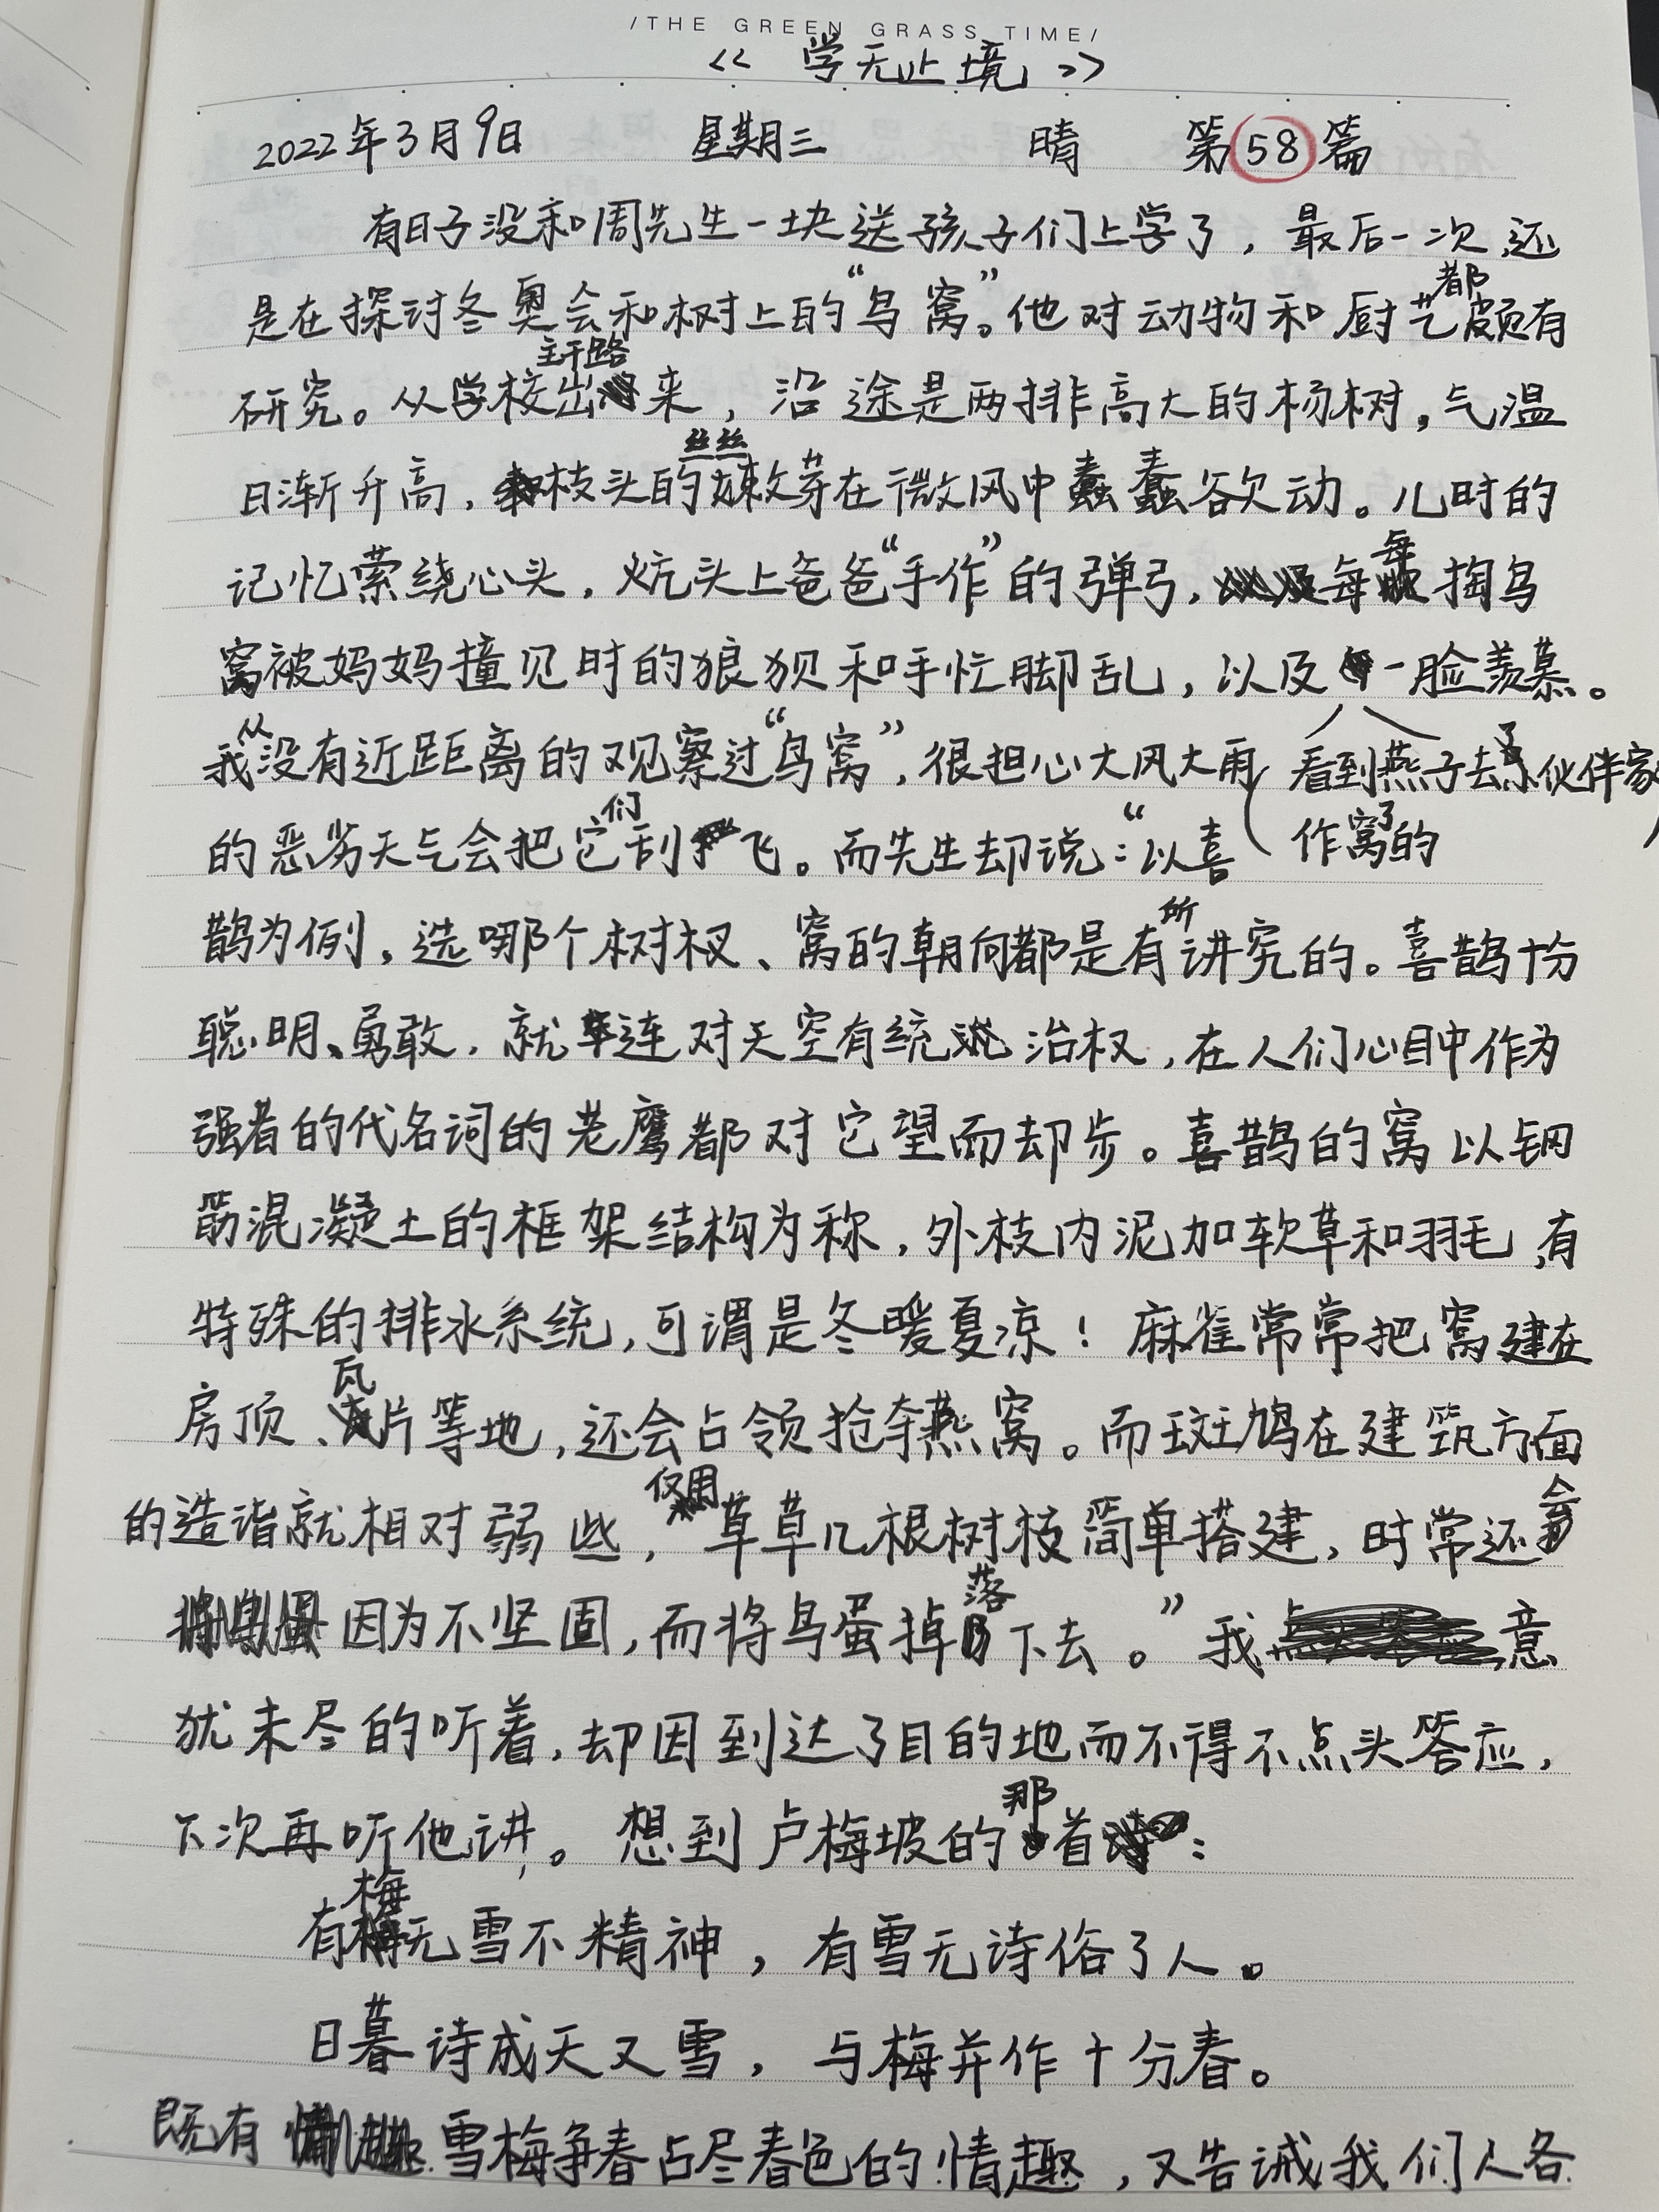 /THE GREEN GRASS TIME/
《学无止境》
2022年3月9日 星期三 晴 第58篇
有日子没和周先生一块送孩子们上学了，最后一次，还
是在探讨冬奥会和树上的“鸟窝”。他对动物和厨艺都颇有
研究。从学校出主干路来，沿途是两排高大的杨树。气温
日渐升高，枝头的丝丝嫩芽在微风中蠢蠢欲动。儿时的
记忆萦绕心头，炕头上爸爸“手作”的弹弓，每每掏鸟
窝被妈妈撞见时的狼狈和手忙脚乱，以及看到燕子去了伙伴家作窝了的一脸羡慕。
我从没有近距离的观察过“鸟窝”，很担心大风大雨
的恶劣天气会把它们刮飞。而先生却说：“以喜
鹊为例，选哪个树杈、窝的朝向都是有所讲究的。喜鹊十份
聪明、勇敢，就连对天空有统治权，在人们心目中作为
强者的代名词的老鹰都对它望而却步。喜鹊的窝以钢
筋混凝土的框架结构为称，外枝内泥加软草和羽毛，有
特殊的排水系统，可谓是冬暖夏凉！麻雀常常把窝建在
房顶、瓦片等地，还会占领抢夺燕窝。而斑鸠在建筑方面
的造诣就相对弱些，仅用草草几根树枝简单搭建，时常还会
因为不坚固，而将鸟蛋掉落下去。”我意
犹未尽的听着，却因到达了目的地而不得不点头答应，
下次再听他讲。想到卢梅坡的那首：
有梅无雪不精神，有雪无诗俗了人。
日暮诗成天又雪，与梅并作十分春。
既有雪梅争春占尽春色的情趣，又告诫我们人各